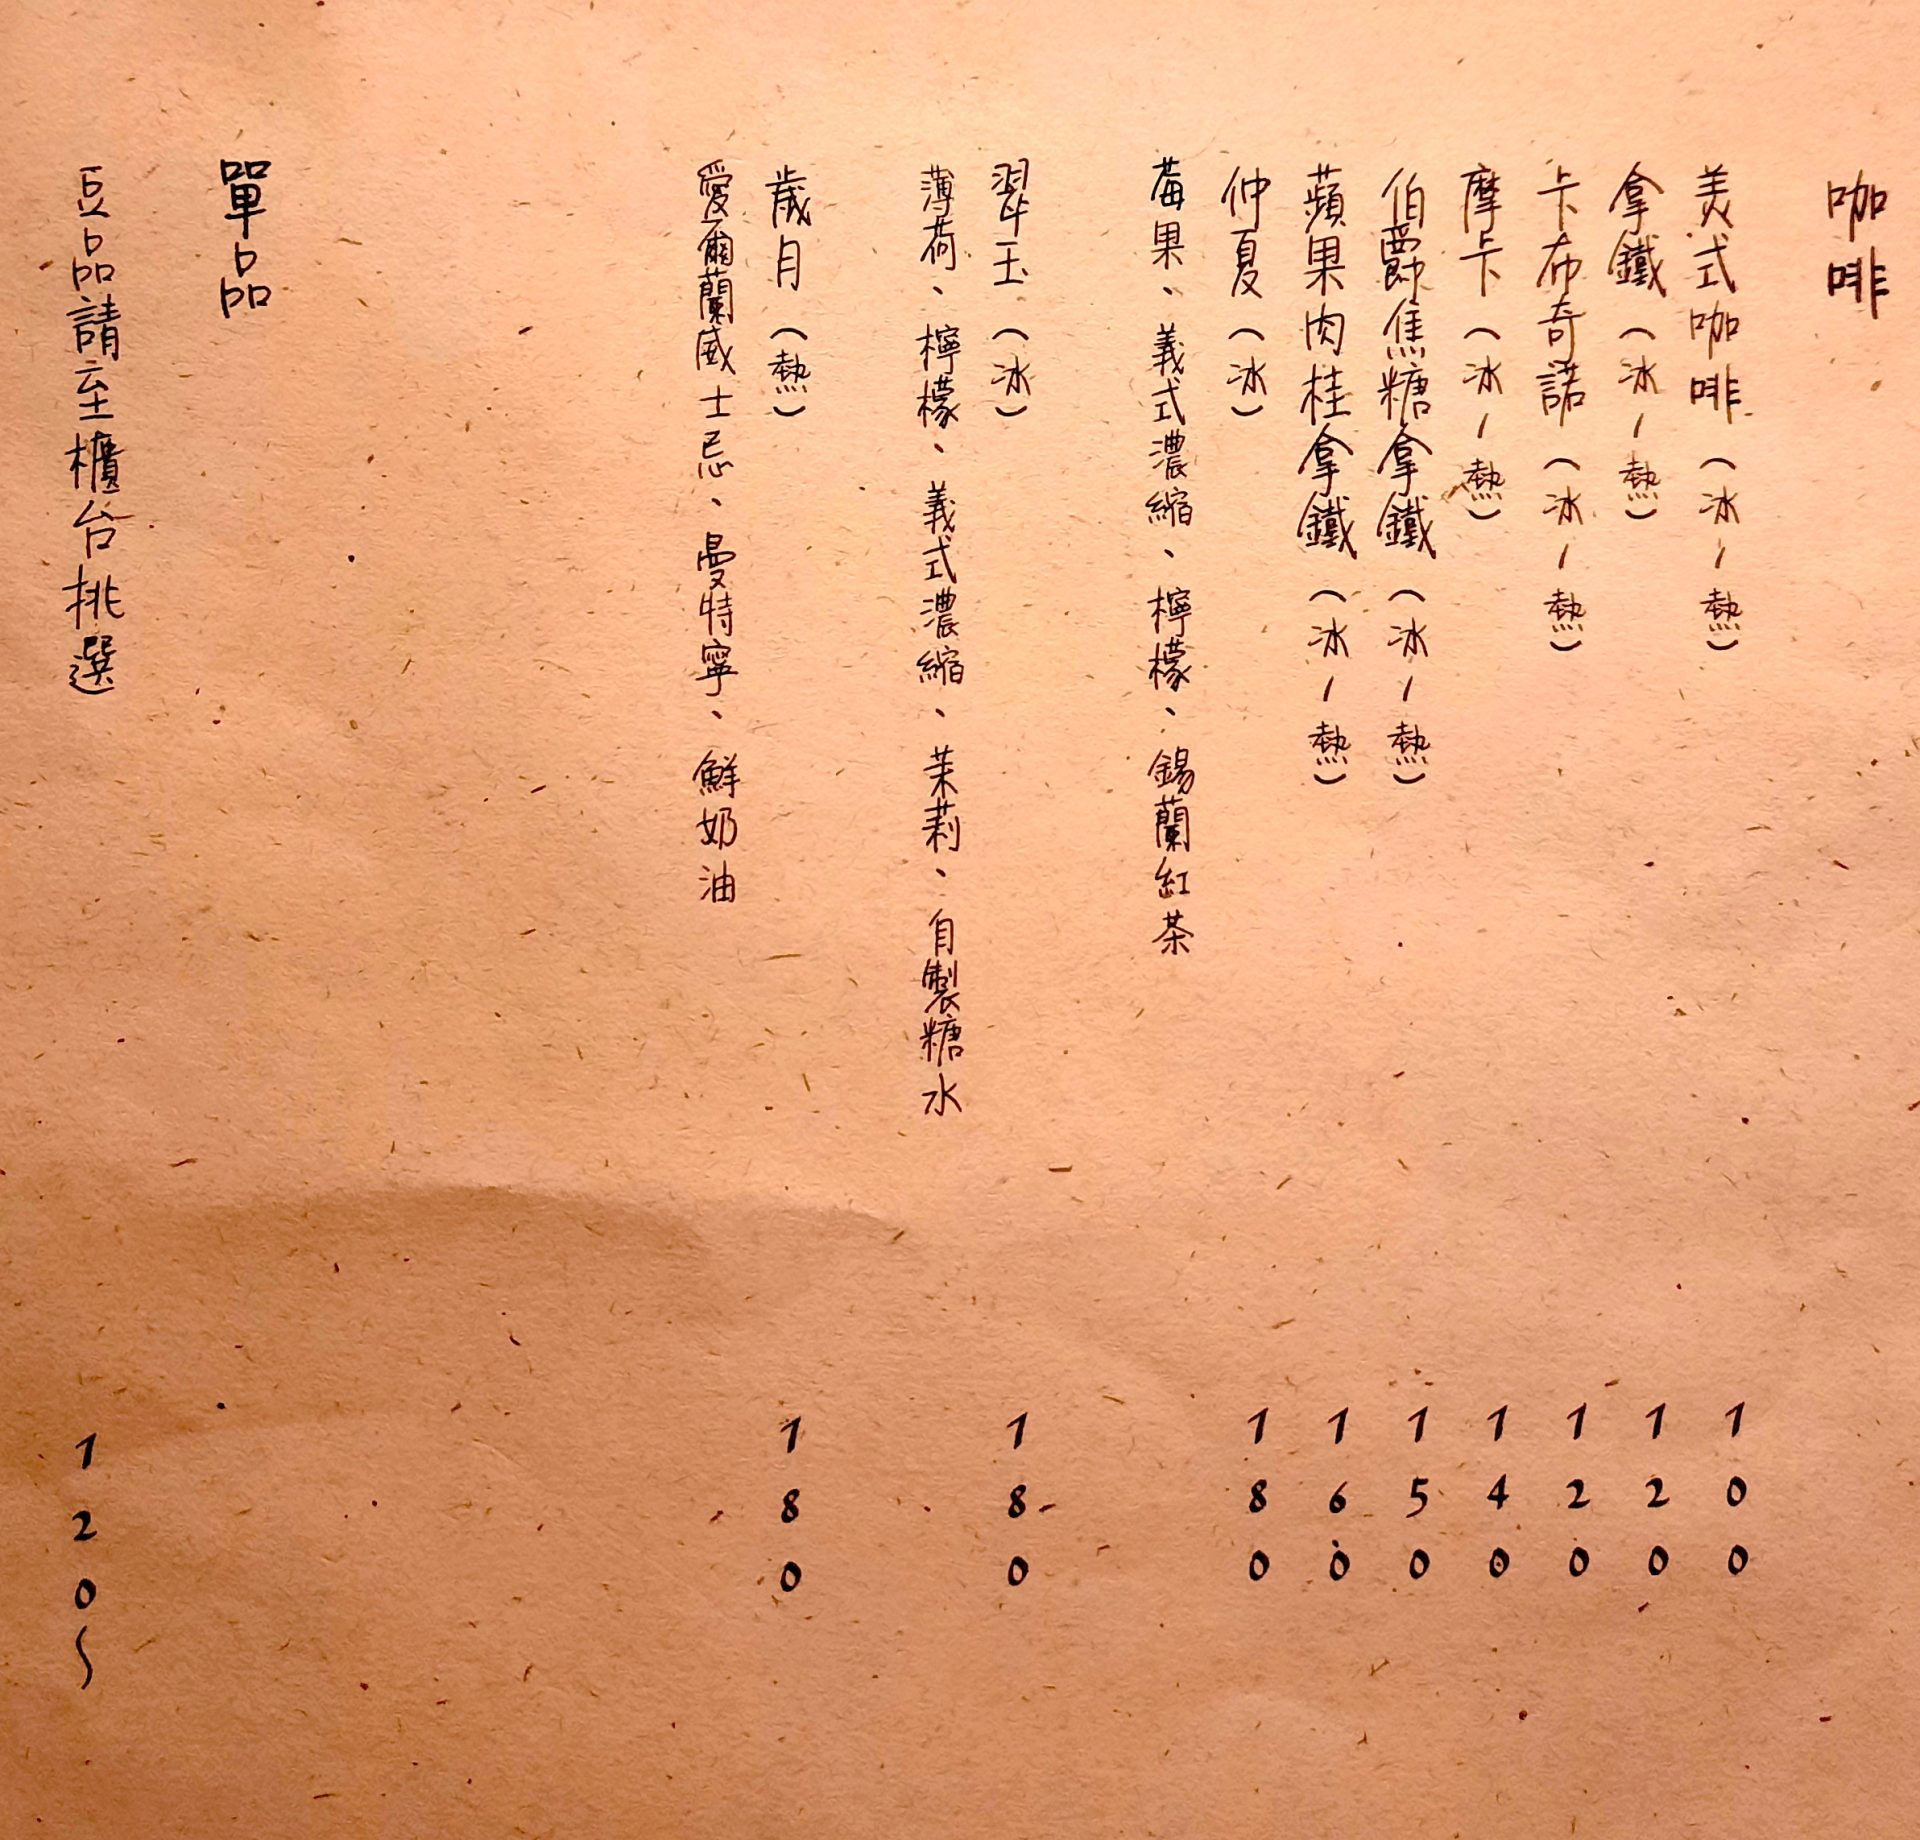 咖啡
美式咖啡（冰/熱） 100
拿鐵（冰/熱） 120
卡布奇諾（冰/熱） 120
摩卡（冰/熱） 140
伯爵焦糖拿鐵（冰/熱） 150
蘋果肉桂拿鐵（冰/熱） 160
仲夏（冰） 180
莓果、義式濃縮、檸檬、錫蘭紅茶
翠玉（冰） 180
薄荷、檸檬、義式濃縮、茉莉、自製糖水
歲月（熱） 180
愛爾蘭威士忌、曼特寧、鮮奶油
單品
豆品請至櫃台挑選 120~